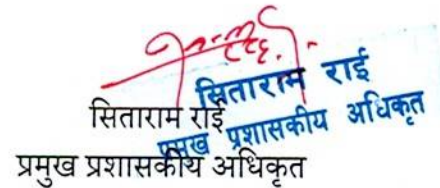 सिताराम राई
प्रमुख प्रशासकीय अधिकृत
सिताराम राई
प्रमुख प्रशासकीय अधिकृत